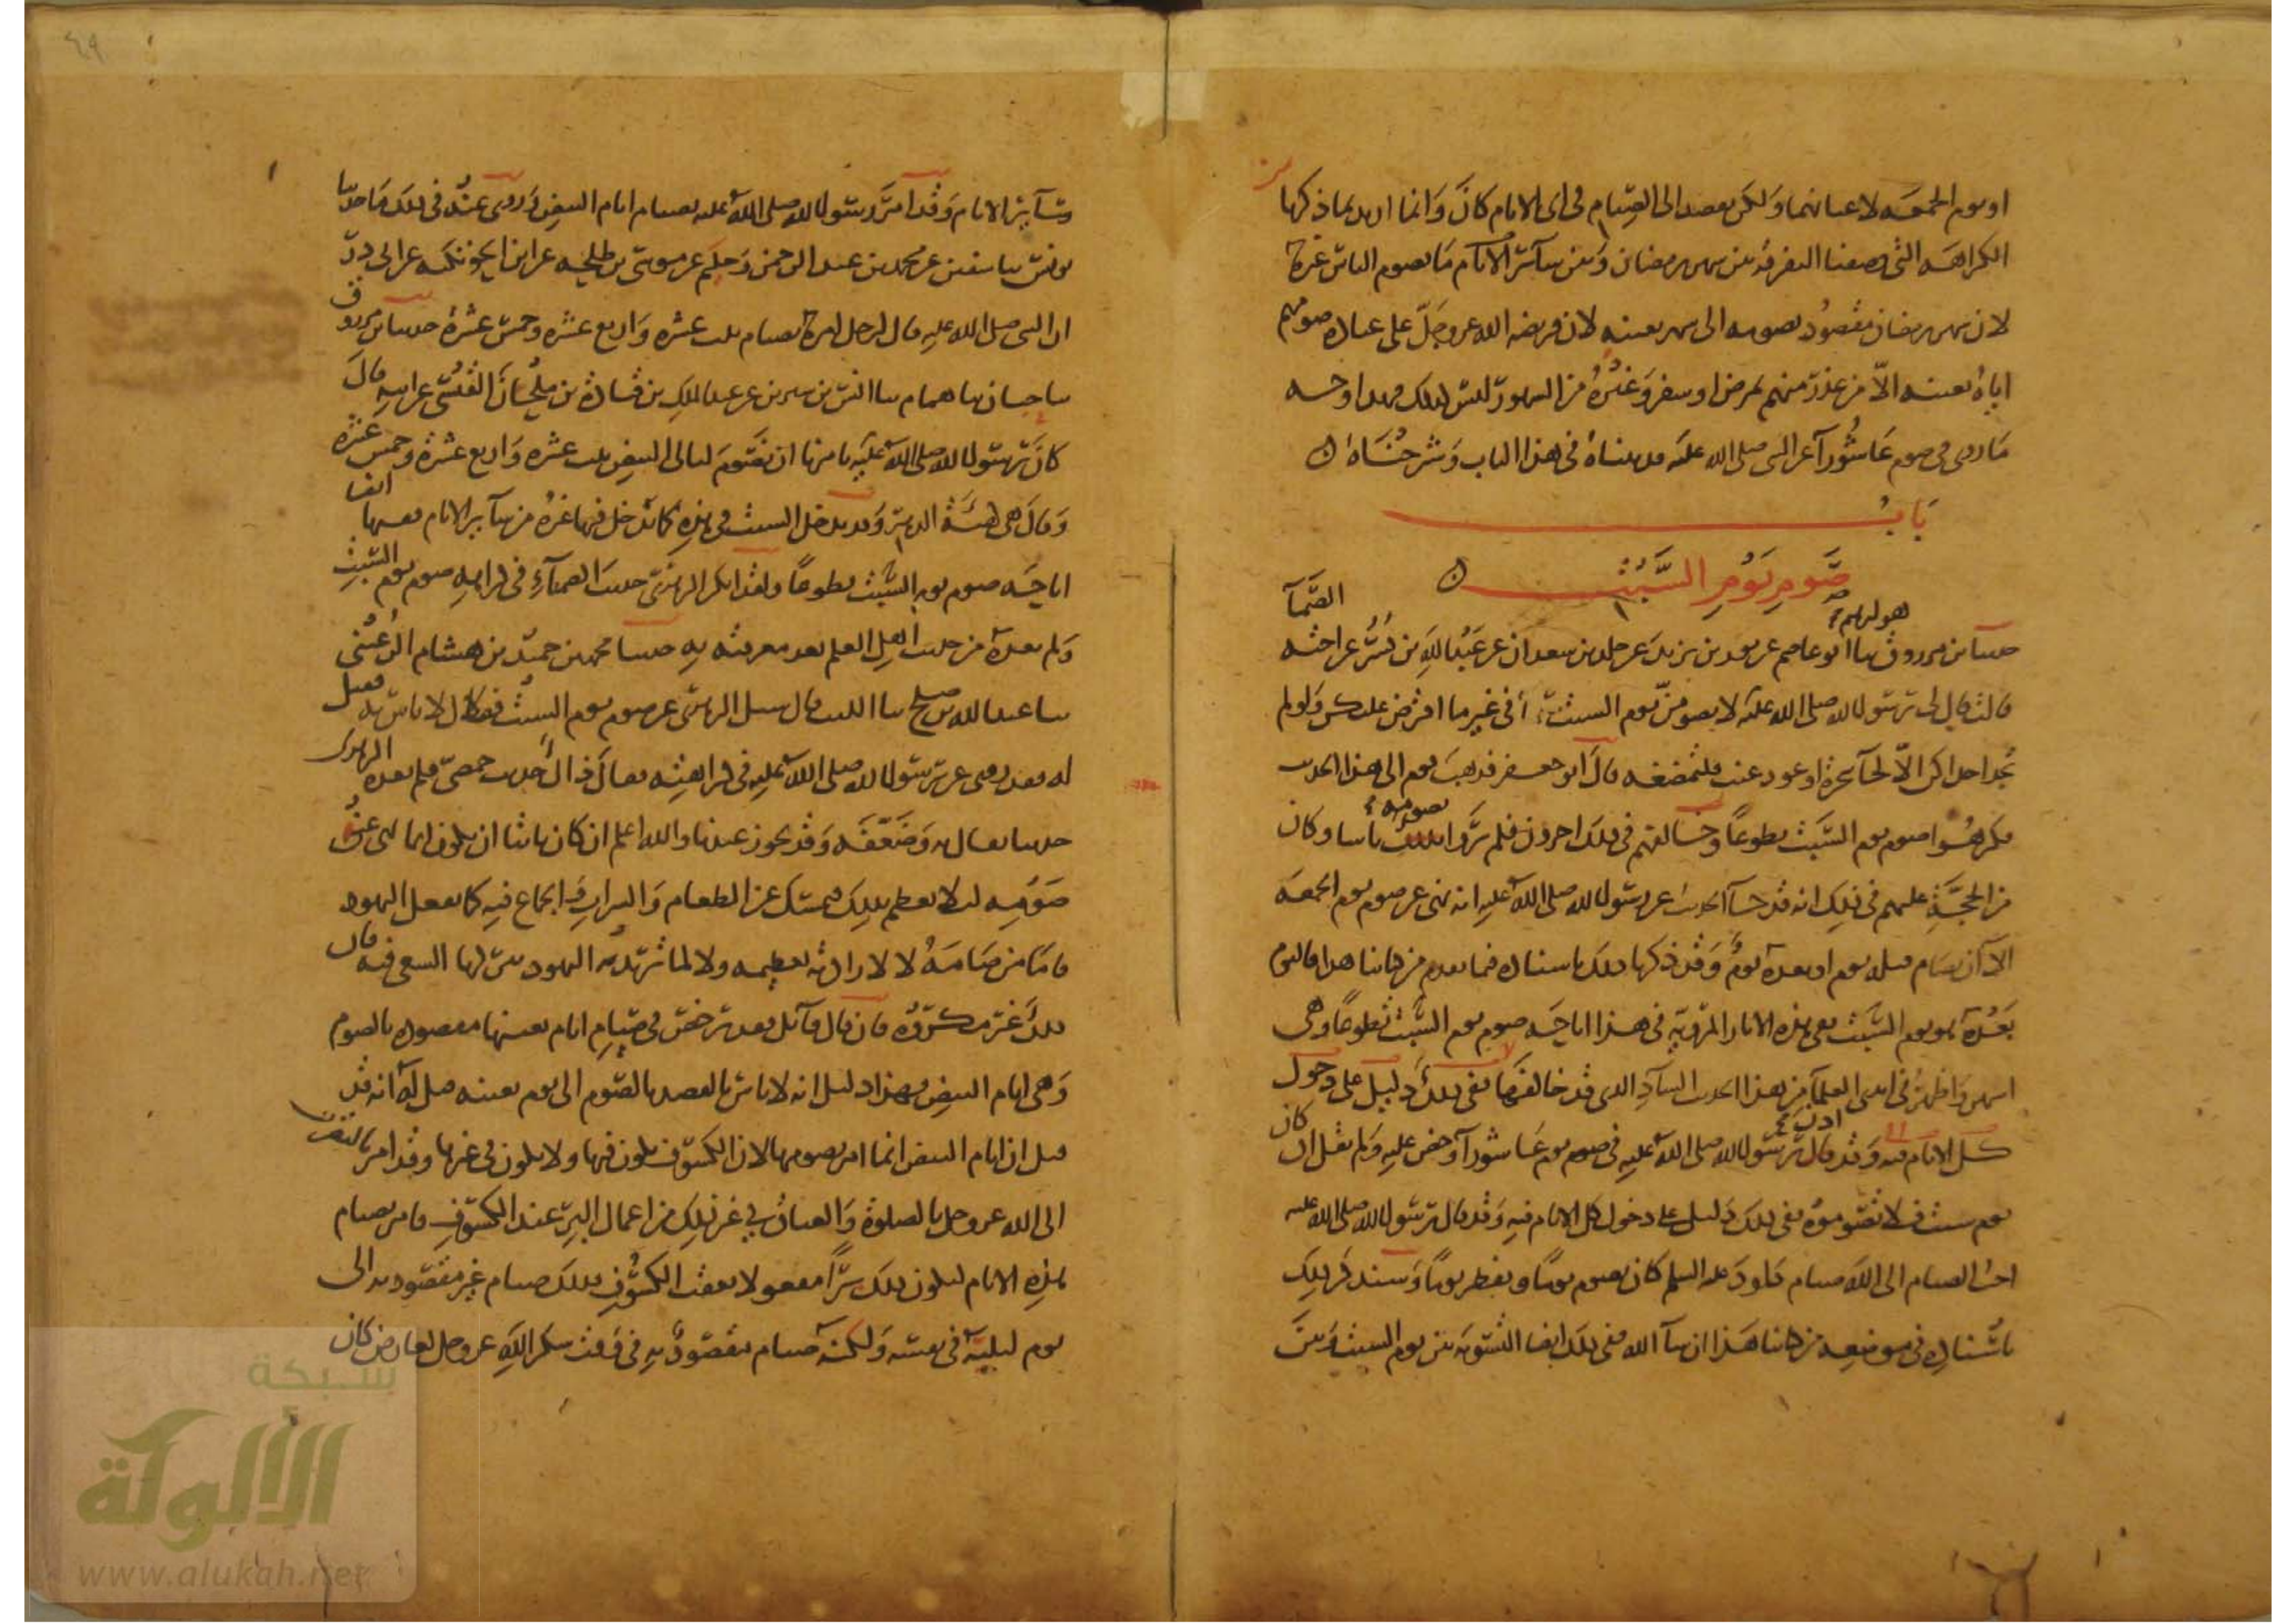 او يوم الجمعه لاعيانهما ولكن يقصد الى الصيام في اى الايام كان وانما اريد بما ذكرنا
الكراهه التى وصفنا التفرقه بين شهر رمضان وبين سائر الايام مما يصوم الناس غيره
لان شهر رمضان مقصود بصومه الى شهر بعينه لان فريضه الله عز وجل على عباده صومهم
اياه بعينه الا من عذر منهم لمرض او سفر وغيره من الشهور ليس كذلك فهذا وجه
ما روى في صوم عاشورآ عن النبي صلى الله عليه قد بيناه في هذا الباب وشرحناه
باب
صوم يوم السبت
حدثنا بن مرزوق ثنا ابو عاصم عن ثور بن يزيد عن خلد بن معدان عن عبد الله بن بسر عن اخته الصمآ
قالت قال لى رسول الله صلى الله عليه لا تصومن يوم السبت فى غير ما افترض عليكن ولو لم
تجد احداكن الا لحآ شجرة او عود عنب فلتمضغه قال ابو جعفر فذهب قوم الى هذا الحديث
فكرهوا صوم يوم السبت تطوعا وخالفهم في ذلك اخرون فلم يروا بصومه باسا وكان
من الحجة عليهم في ذلك انه قد جآ الحديث عن رسول الله صلى الله عليه انه نهى عن صوم يوم الجمعه
الا ان يصام قبله يوم او بعده يوم وقد ذكرنا ذلك باسناده فيما تقدم من كتابنا هذا فاليوم
بعده هو يوم السبت ففي هذه الاثار المروية في هذا اباحه صوم يوم السبت تطوعا وهى
اشهر واظهر في ايدى العلمآ من هذا الحديث الشاذ الذى قد خالفها ففى ذلك دليل على دخول
كل الايام فيه وقد قال رسول الله صلى الله عليه في صوم يوم عاشورآ وحض عليه ولم يقل ان كان
يوم سبت فلا تصوموه ففى ذلك دليل على دخول كل الايام فيه وقد قال رسول الله صلى الله عليه
احب الصيام الى الله صيام داود عليه السلم كان يصوم يوما ويفطر يوما وسنذكر ذلك
باسناده في موضعه من كتابنا هذا ان شآ الله ففى ذلك ايضا التسويه بين يوم السبت وبين
وسآئر الايام وقد امر رسول الله صلى الله عليه بصيام ايام البيض وروى عنه في ذلك ما حدثنا
يونس ثنا سفين عن محمد بن عبد الرحمن وحكيم عن موسى بن طلحه عن ابن الحوتكيه عن ابى ذر
ان النبي صلى الله عليه قال لرجل امره بصيام ثلث عشره واربع عشره وخمس عشرة حدثنا بن مرزوق
ثنا حبان ثنا همام ثنا انس بن سيرين عن عبد الملك بن قتادة بن ملحان القيسى عن ابيه قال
كان رسول الله صلى الله عليه يامرنا ان نصوم ليالى البيض ثلث عشره واربع عشرة وخمس عشره
وقال هى كهيئة الدهر وقد يدخل السبت في هذه كما يدخل فيها غيره من سآير الايام ففيها ايضا
اباحه صوم يوم السبت تطوعا ولقد انكر الزهرى حديث الصمآء في كراهيه صوم يوم السبت
ولم يعده من حديث اهل العلم بعد معرفته به حدثنا محمد بن حميد بن هشام الرعينى
ثنا عبد الله بن صلح ثنا الليث قال سئل الزهرى عن صوم يوم السبت فقال لا باس به فقيل
له فقد روى عن رسول الله صلى الله عليه في كراهيته فقال ذاك حديث حمصى فلم يعده الزهرى
حديثا يقال به وضعفه وقد يجوز عندنا والله اعلم ان كان ثابتا ان يكون انما نهى عن
صومه لئلا يعظم بذلك فيمسك عن الطعام والشراب والجماع فيه كما يفعل اليهود
فاما من صامه لا لارادته تعظيمه ولا لما تريد به اليهود بتركها السعى فيه فان
ذلك غير مكروه فان قال قآئل فقد رخص في صيام ايام بعينها مقصوده بالصوم
وهى ايام البيض فهذا دليل انه لا باس بالقصد بالصوم الى يوم بعينه قيل له انه قد
قيل ان ايام البيض انما امر بصومها لان الكسوف يكون فيها ولا يكون في غيرها وقد امرنا بالتقرب
الى الله عز وجل بالصلوة والعتاق وغير ذلك من اعمال البر عند الكسوف فامر بصيام
هذه الايام ليكون ذلك برا مفعولا بعقب الكسوف فذلك صيام غير مقصود به الى
يوم لعينه في نفسه ولكنه صيام مقصود به في وقت شكر الله عز وجل لعارض كان
شبكة
الألوكة
www.alukah.net